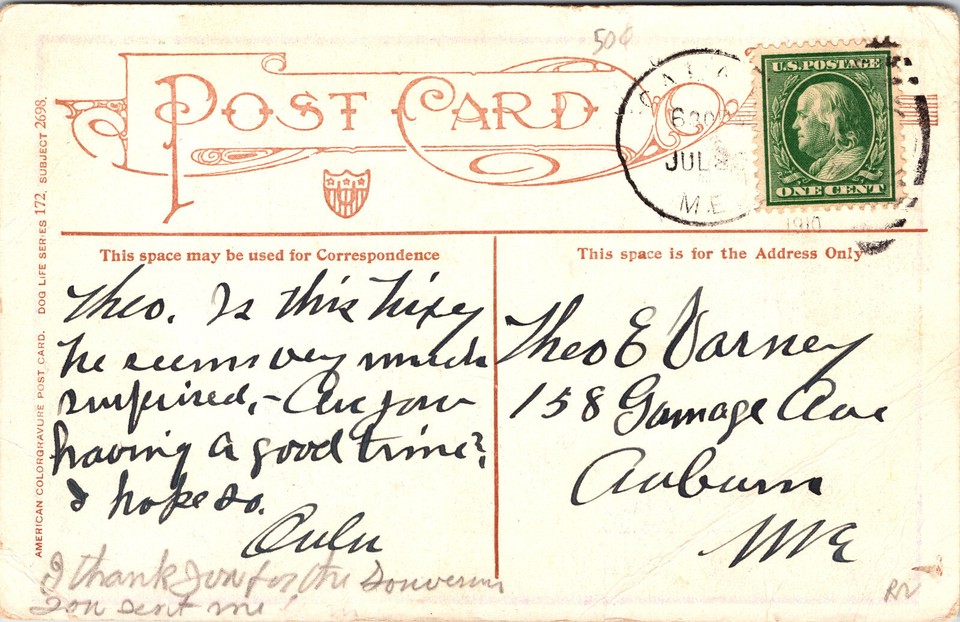 50¢
POST CARD
U.S. POSTAGE
ONE CENT
630
JUL
M.E
1910
AMERICAN COLORGRAVURE POST CARD. DOG LIFE SERIES 172. SUBJECT 2698.
This space may be used for Correspondence
This space is for the Address Only
Theo. Is this Tixey
he seems very much
surprised,- Are you
having a good time?
I hope so.
Theo E Varney
158 Gamage Ave
Auburn
ME
I thank you for the Souvenir
you sent me